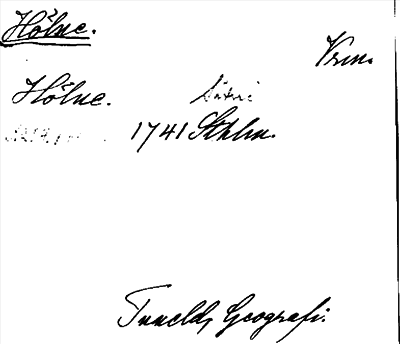 Hölne.
Vrm.
Hölne. Säteri
1741 Sthlm.
Tunelds Geografi.